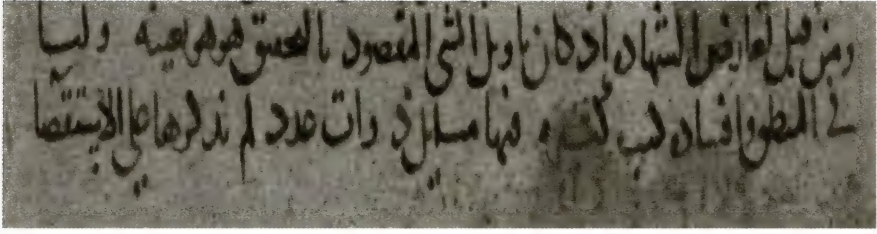 ومن قبل تعارض الشهادة اذ كان تاويل الشي المقصود بالتحقيق هو هو بعينه ولنا
في المنطق وافساده كتب كثيره فيها مسايل ذوات عدد لم نذكرها على الاستقصا